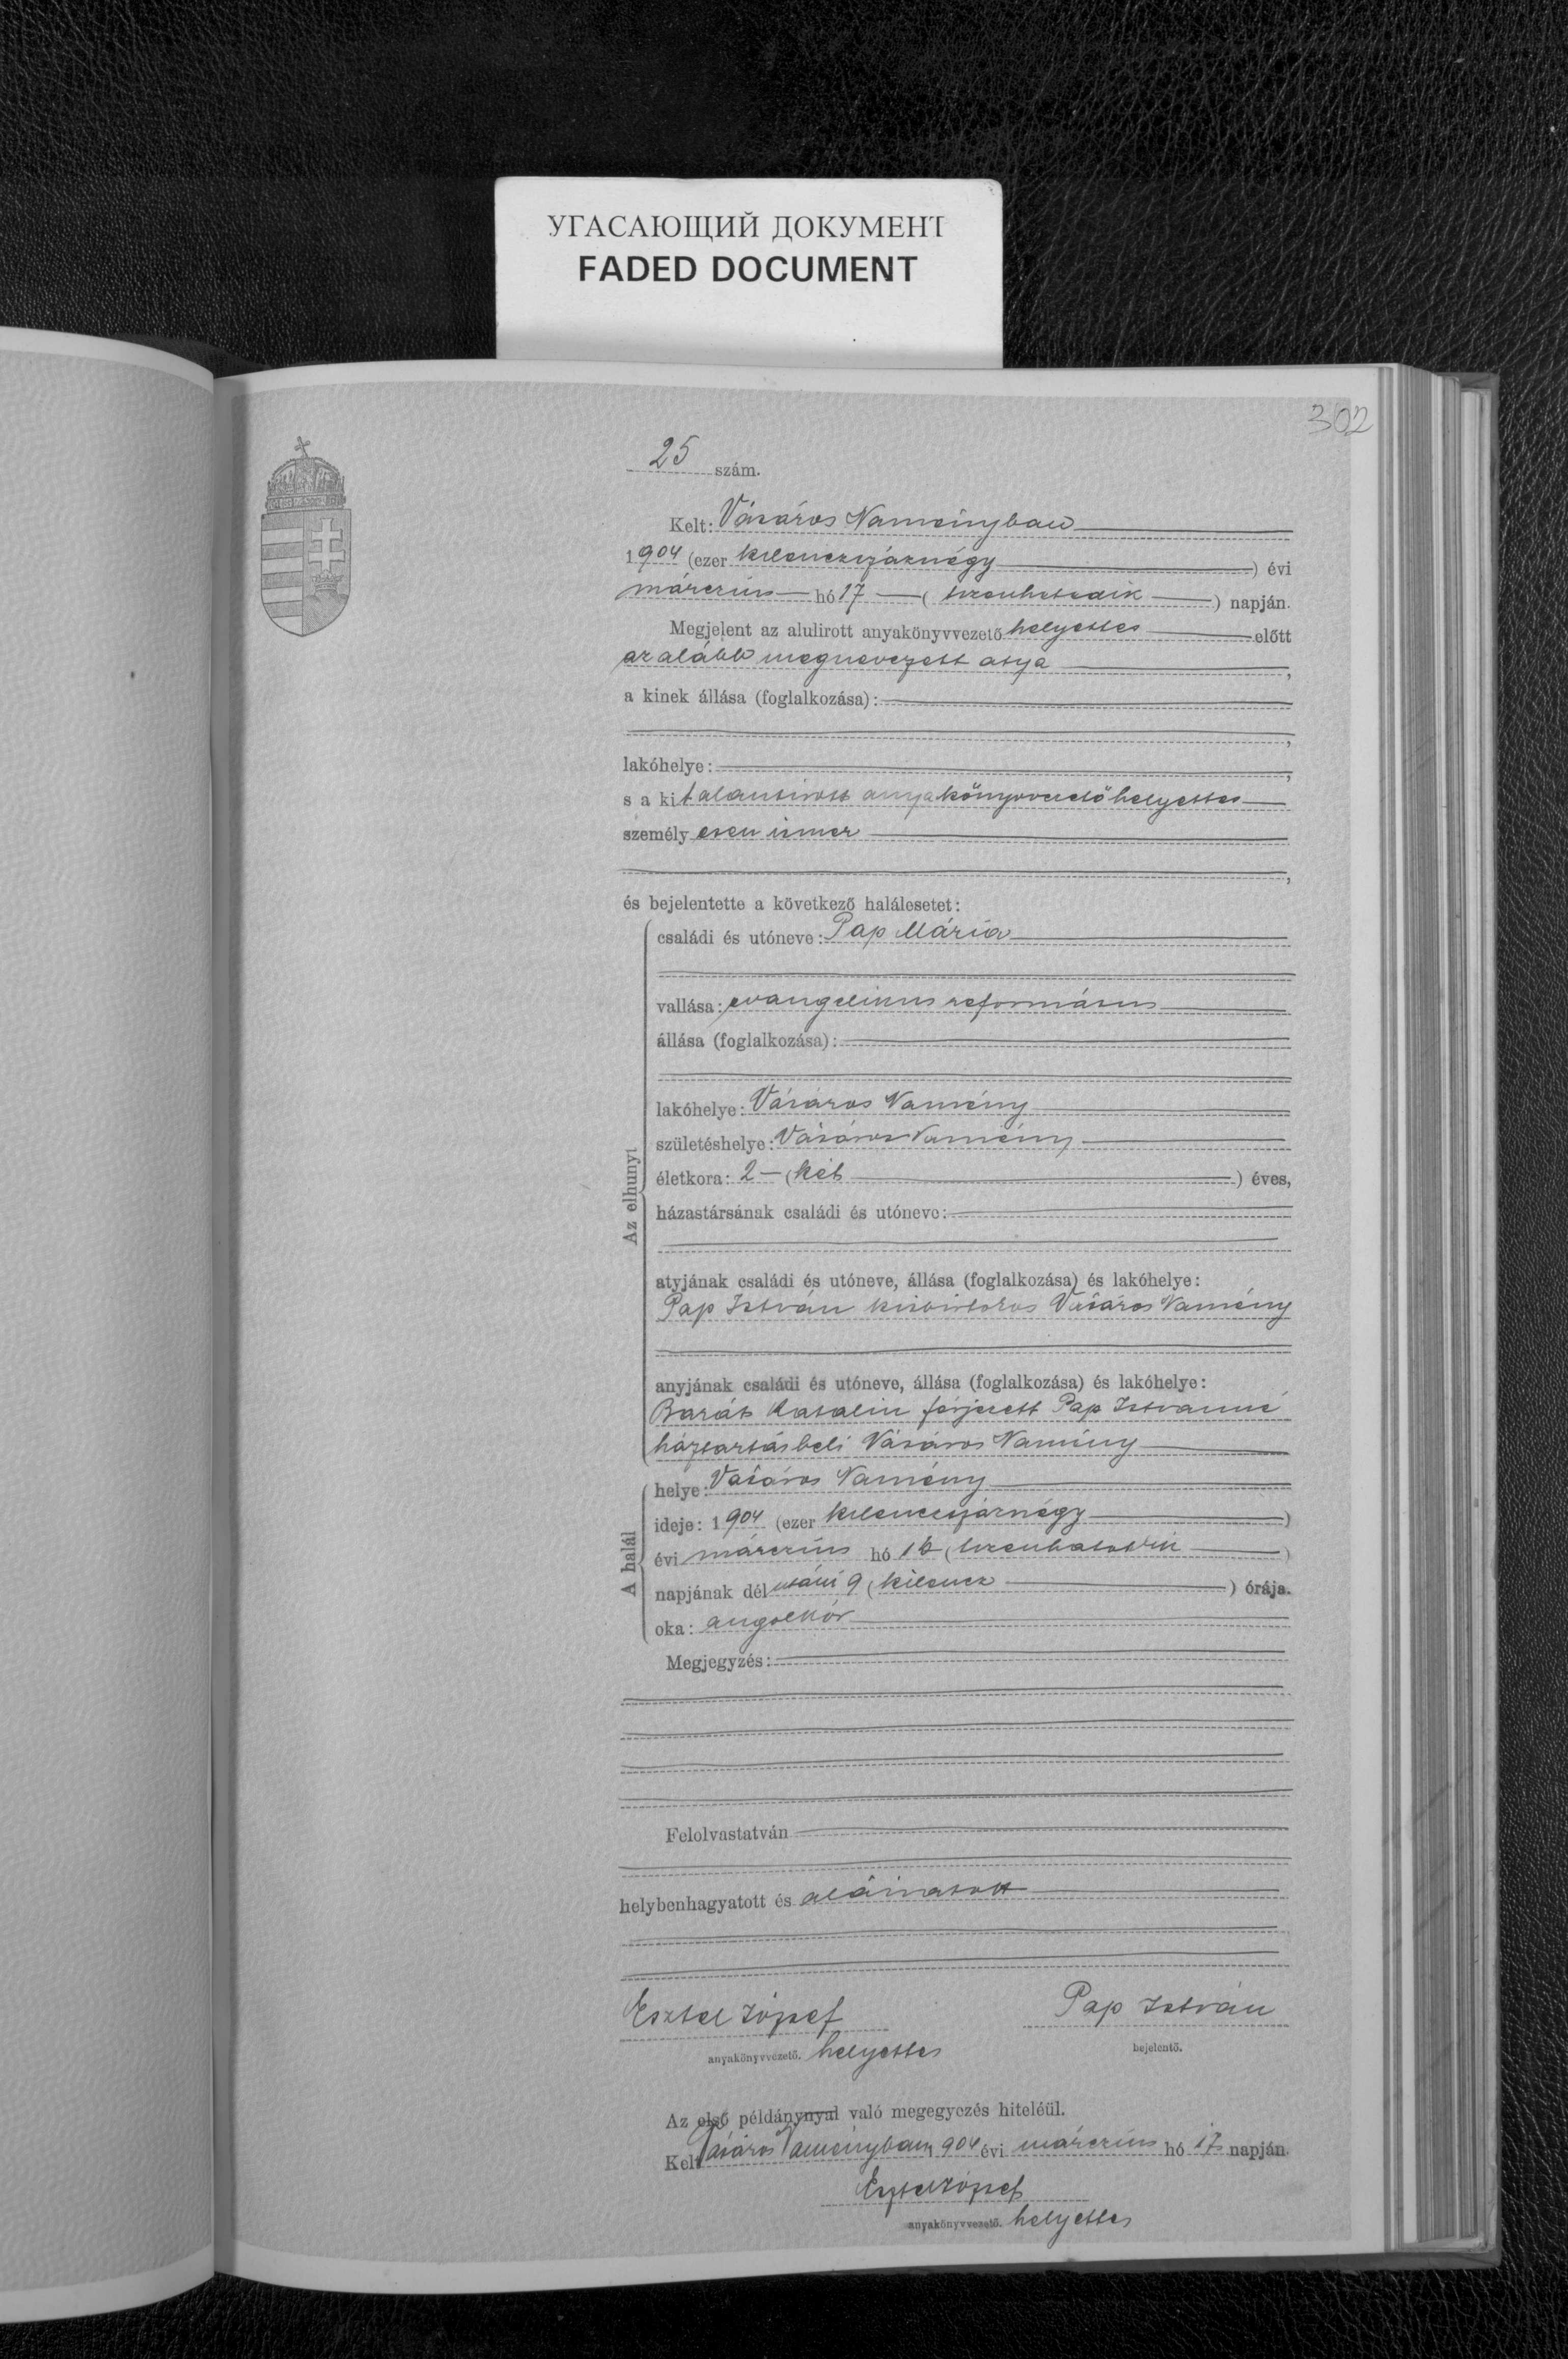 УГАСАЮЩИЙ ДОКУМЕНТ
FADED DOCUMENT
302
25 szám.
Kelt: Vásáros Naményban
1904 (ezer kilenczszáznégy) évi
márczius hó 17 (tizenhetedik) napján.
Megjelent az alulirott anyakönyvvezető helyettes előtt
az alább megnevezett atya,
a kinek állása (foglalkozása):
,
lakóhelye: ,
s a kit alantirott anyakönyvvezető helyettes
személyesen ismer
,
és bejelentette a következő halálesetet:
Az elhunyt
családi és utóneve: Pap Mária
vallása: evangelikus református
állása (foglalkozása):
lakóhelye: Vásáros Namény
születéshelye: Vásáros Namény
életkora: 2 (két) éves,
házastársának családi és utóneve:
atyjának családi és utóneve, állása (foglalkozása) és lakóhelye:
Pap István kisbirtokos Vásáros Namény
anyjának családi és utóneve, állása (foglalkozása) és lakóhelye:
Barát Katalin férjezett Pap Istvánné
háztartásbeli Vásáros Namény
A halál
helye: Vásáros Namény
ideje: 1904 (ezer kilenczszáznégy)
évi márczius hó 16 (tizenhatodik)
napjának dél utáni 9 (kilencz) órája.
oka: angolkór
Megjegyzés:
Felolvastatván
helybenhagyatott és aláiratott
Esztel József Pap István
anyakönyvvezető. helyettes bejelentő.
Az első példánynyal való megegyezés hiteléül.
Kelt Vásáros Naményban 1904 évi márczius hó 17 napján.
Esztel József
anyakönyvvezető. helyettes